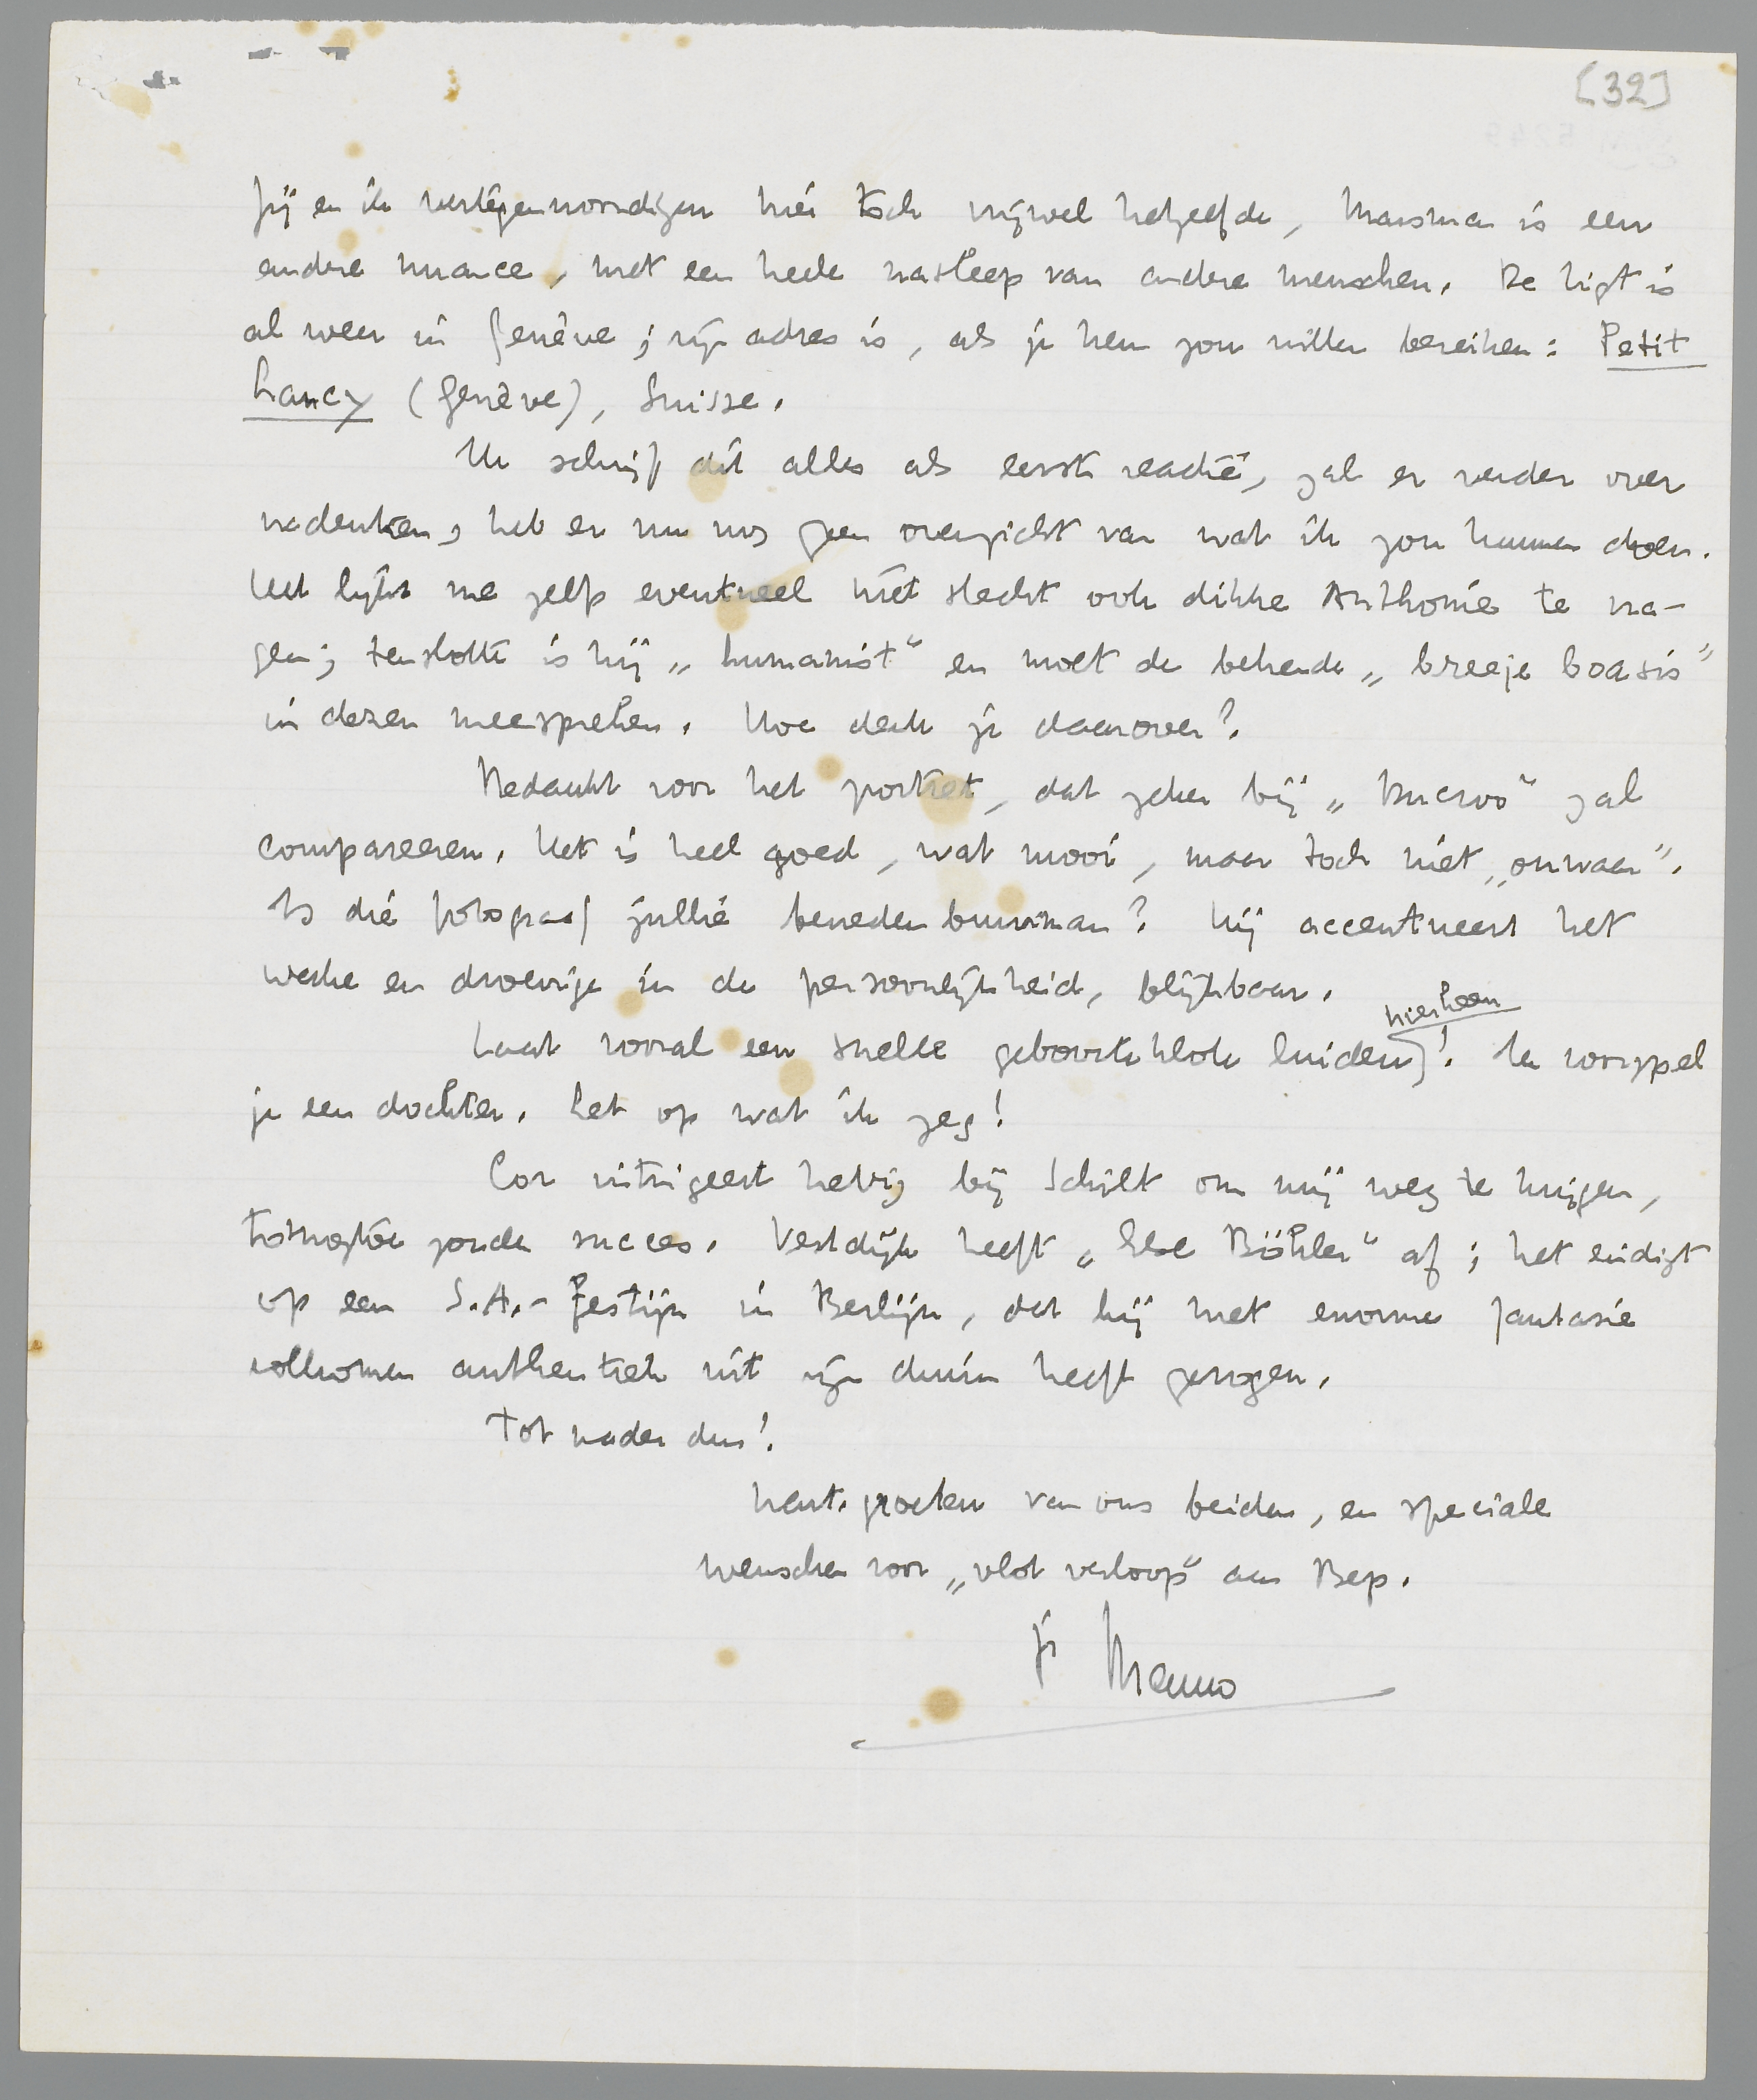 [32]
Jij en ik vertegenwoordigen hier toch vrijwel hetzelfde, Marsman is een
andere nuance, met een heele nasleep van andere menschen. De Ligt is
al weer in Genève; zijn adres is, als je hem zou willen bereiken: Petit
Lancy (Genève), Suisse.
Ik schrijf dit alles als eerste reactie, zal er verder over
nadenken, heb er nu nog geen overzicht van wat ik zou kunnen doen.
Het lijkt me zelfs eventueel niet slecht ook dikke Anthonie te vra-
gen; tenslotte is hij „humanist" en moet de bekende „breeje boasis"
in dezen meespreken. Hoe denk je daarover?
Bedankt voor het portret, dat zeker bij „Ducroo" zal
compareeren. Het is heel goed, wat mooi, maar toch niet „onwaar".
Is die fotograaf jullie benedenbuurman? Hij accentueert het
weeke en droevige in de persoonlijkheid, blijkbaar.
hierheen
Laat vooral een snelle geboorteklok luiden! Ik voorspel
je een dochter. Let op wat ik zeg!
Cor intrigeert hevig bij Schilt om mij weg te krijgen,
totnogtoe zonder succes. Vestdijk heeft „Else Böhler" af; het eindigt
op een S.A.-festijn in Berlijn, dat hij met enorme fantasie
volkomen authentiek uit zijn duim heeft gezogen.
Tot nader dus!
hart. groeten van ons beiden, en speciale
wenschen voor „vlot verloop" aan Bep.
je Menno